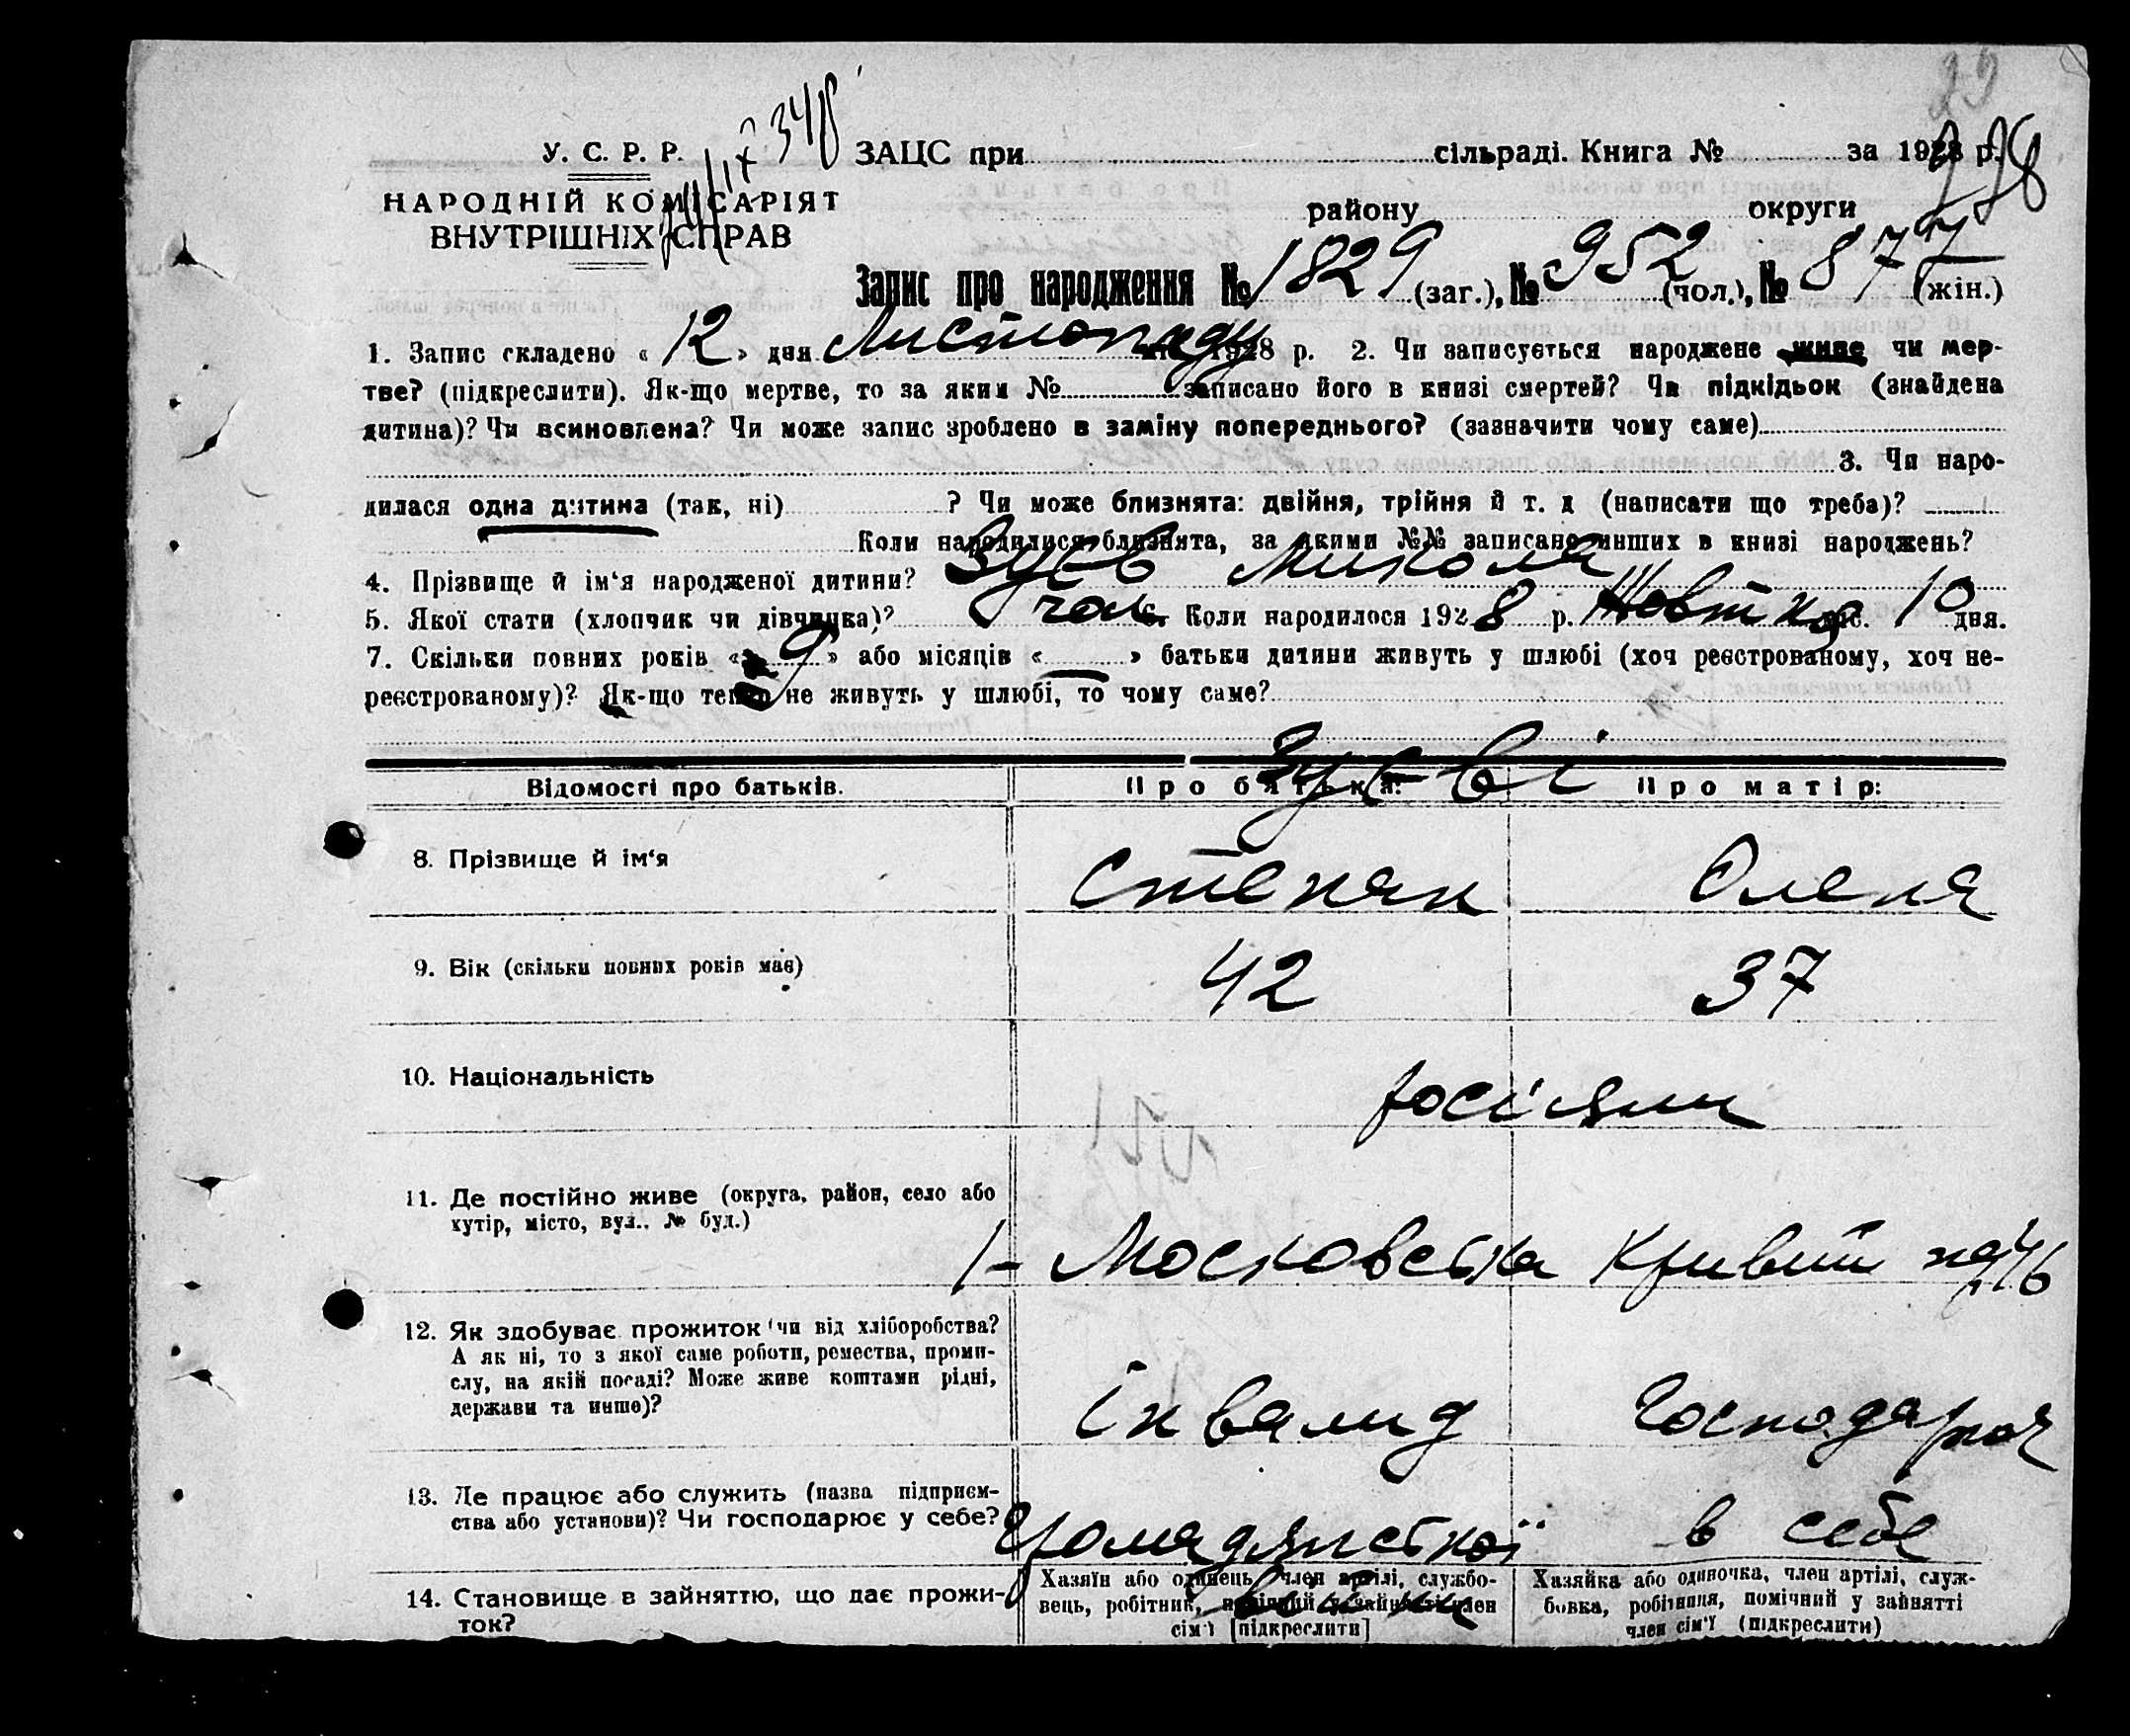 У. С. Р. Р.
НАРОДНІЙ КОМІСАРІЯТ
ВНУТРІШНІХ СПРАВ
348
ЗАЦС при сільраді. Книга № за 1928 р.
району округи
Запис про народження № 1829 (заг.), № 952 (чол.), № 877 (жін.)
1. Запис складено « 12 » дня Листопаду 1928 р. 2. Чи записується народжене живе чи мер-
тве? (підкреслити). Як-що мертве, то за яким № записано його в книзі смертей? Чи підкідьок (знайдена
дитина)? Чи всиновлена? Чи може запис зроблено в заміну попереднього? (зазначити чому саме)
3. Чи наро-
дилася одна дитина (так, ні) ? Чи може близнята: двійня, трійня й т. д (написати що треба)?
Коли народилися близнята, за якими №№ записано инших в книзі народжень?
4. Прізвище й ім‘я народженої дитини? Зуєв Микола
5. Якої стати (хлопчик чи дівчинка)? чол. 6. Коли народилося 1928 р. Жовтня міс. 10 дня.
7. Скільки повних років « 9 » або місяців « — » батьки дитини живуть у шлюбі (хоч реєстрованому, хоч не-
реєстрованому)? Як-що тепер не живуть у шлюбі, то чому саме?
Зуєві
Відомості про батьків. Про батька: Про матір:
8. Прізвище й ім‘я Степан Олена
9. Вік (скільки повних років має) 42 37
10. Національність росіяни
11. Де постійно живе (округа, район, село або
хутір, місто, вул.. № буд.)
1 – Московська Кривий 46
12. Як здобуває прожиток (чи від хліборобства?
А як ні, то з якої саме роботи, ремества, проми-
слу, на якій посаді? Може живе коштами рідні,
держави та инше)?
інвалид Господарюв
13. Де працює або служить (назва підприєм-
ства або установи)? Чи господарює у себе?
Громадянської в себе
війни
14. Становище в зайняттю, що дає прожи-
ток?
Хазяїн або одинець, член артілі, службо-
вець, робітник, помічний у зайнятті член
сім‘ї [підкреслити]
Хазяйка або одиночка, член артілі, служ-
бовка, робітниця, помічний у зайнятті
член сім‘ї (підкреслити)